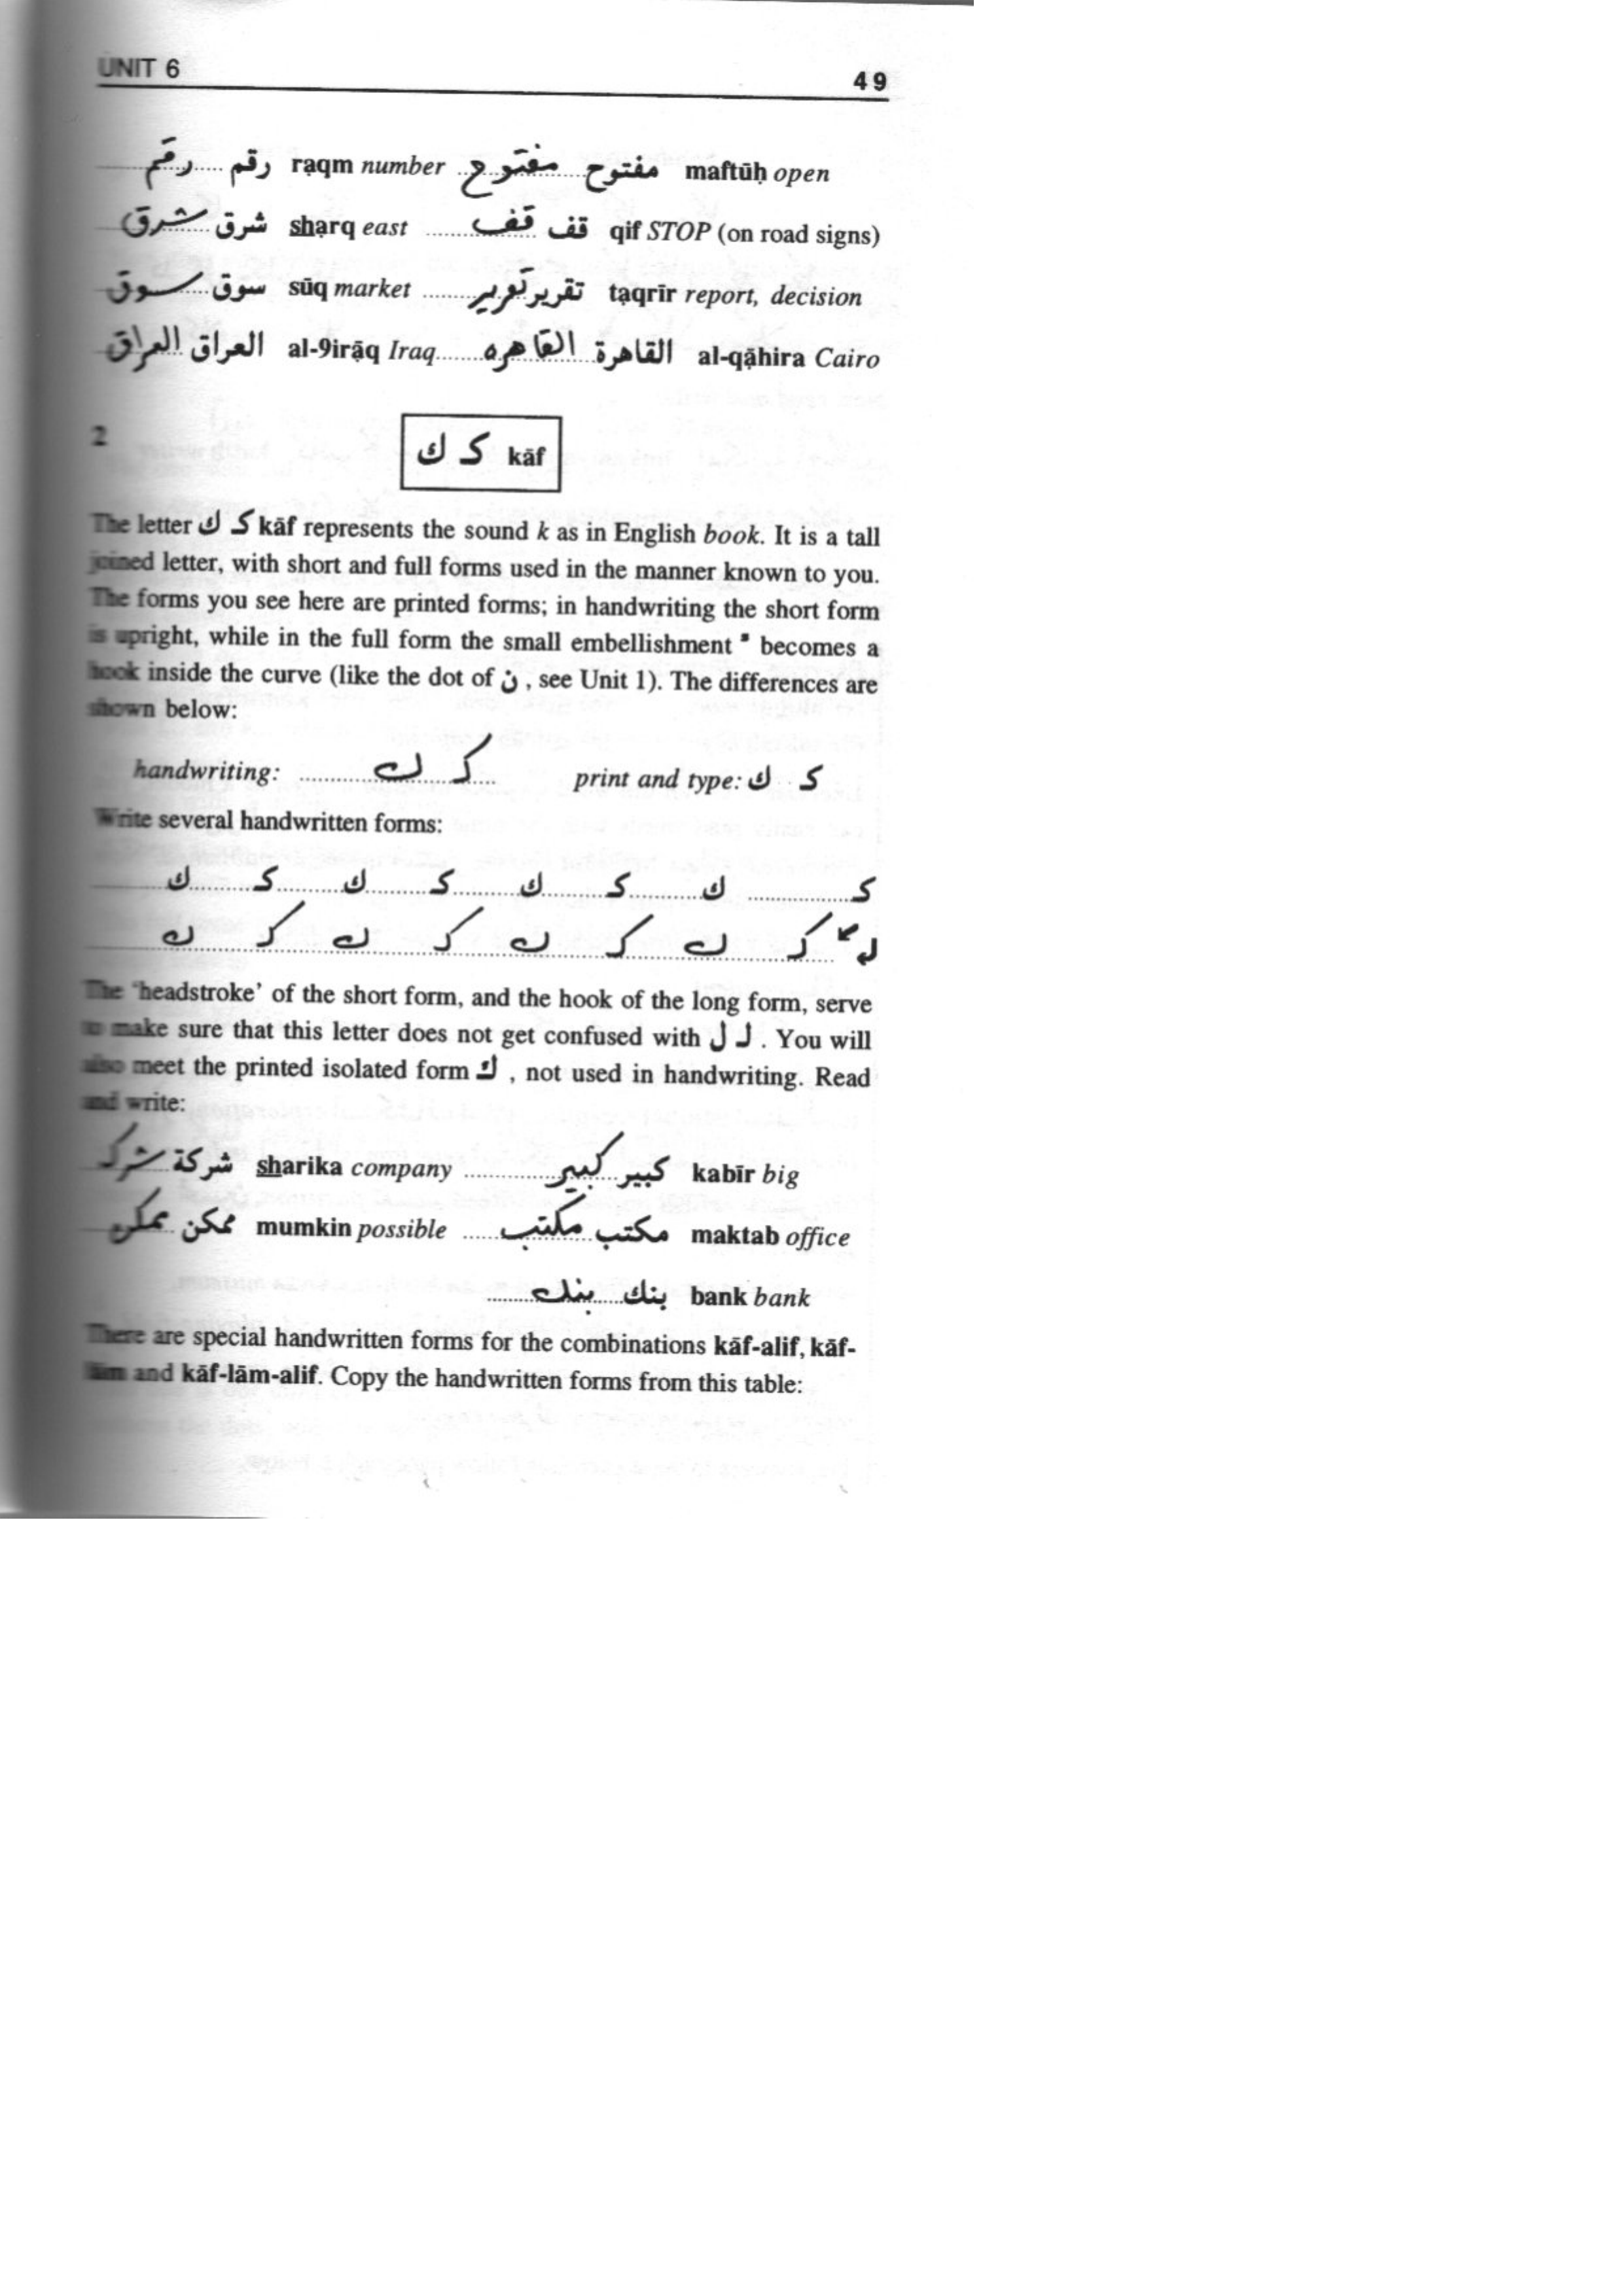 UNIT 6 49
رقم رقم raqm number مفتوح مفتوح maftūḥ open
شرق شرق sharq east قف قف qif STOP (on road signs)
سوق سوق sūq market تقرير تقرير taqrīr report, decision
العراق العراق al-9irāq Iraq القاهره القاهرة al-qāhira Cairo
2 ك كـ kāf
The letter ك كـ kāf represents the sound k as in English book. It is a tall
joined letter, with short and full forms used in the manner known to you.
The forms you see here are printed forms; in handwriting the short form
is upright, while in the full form the small embellishment ء becomes a
hook inside the curve (like the dot of ن , see Unit 1). The differences are
shown below:
handwriting: ك كـ print and type: ك كـ
Write several handwritten forms:
ك كـ ك كـ ك كـ ك كـ
ك كـ ك كـ ك كـ ك كـ
The ‘headstroke’ of the short form, and the hook of the long form, serve
to make sure that this letter does not get confused with ل لـ . You will
also meet the printed isolated form ك , not used in handwriting. Read
and write:
شركة sharika company كبير كبير kabīr big
ممكن ممكن mumkin possible مكتب مكتب maktab office
بنك بنك bank bank
There are special handwritten forms for the combinations kāf-alif, kāf-
lām and kāf-lām-alif. Copy the handwritten forms from this table: